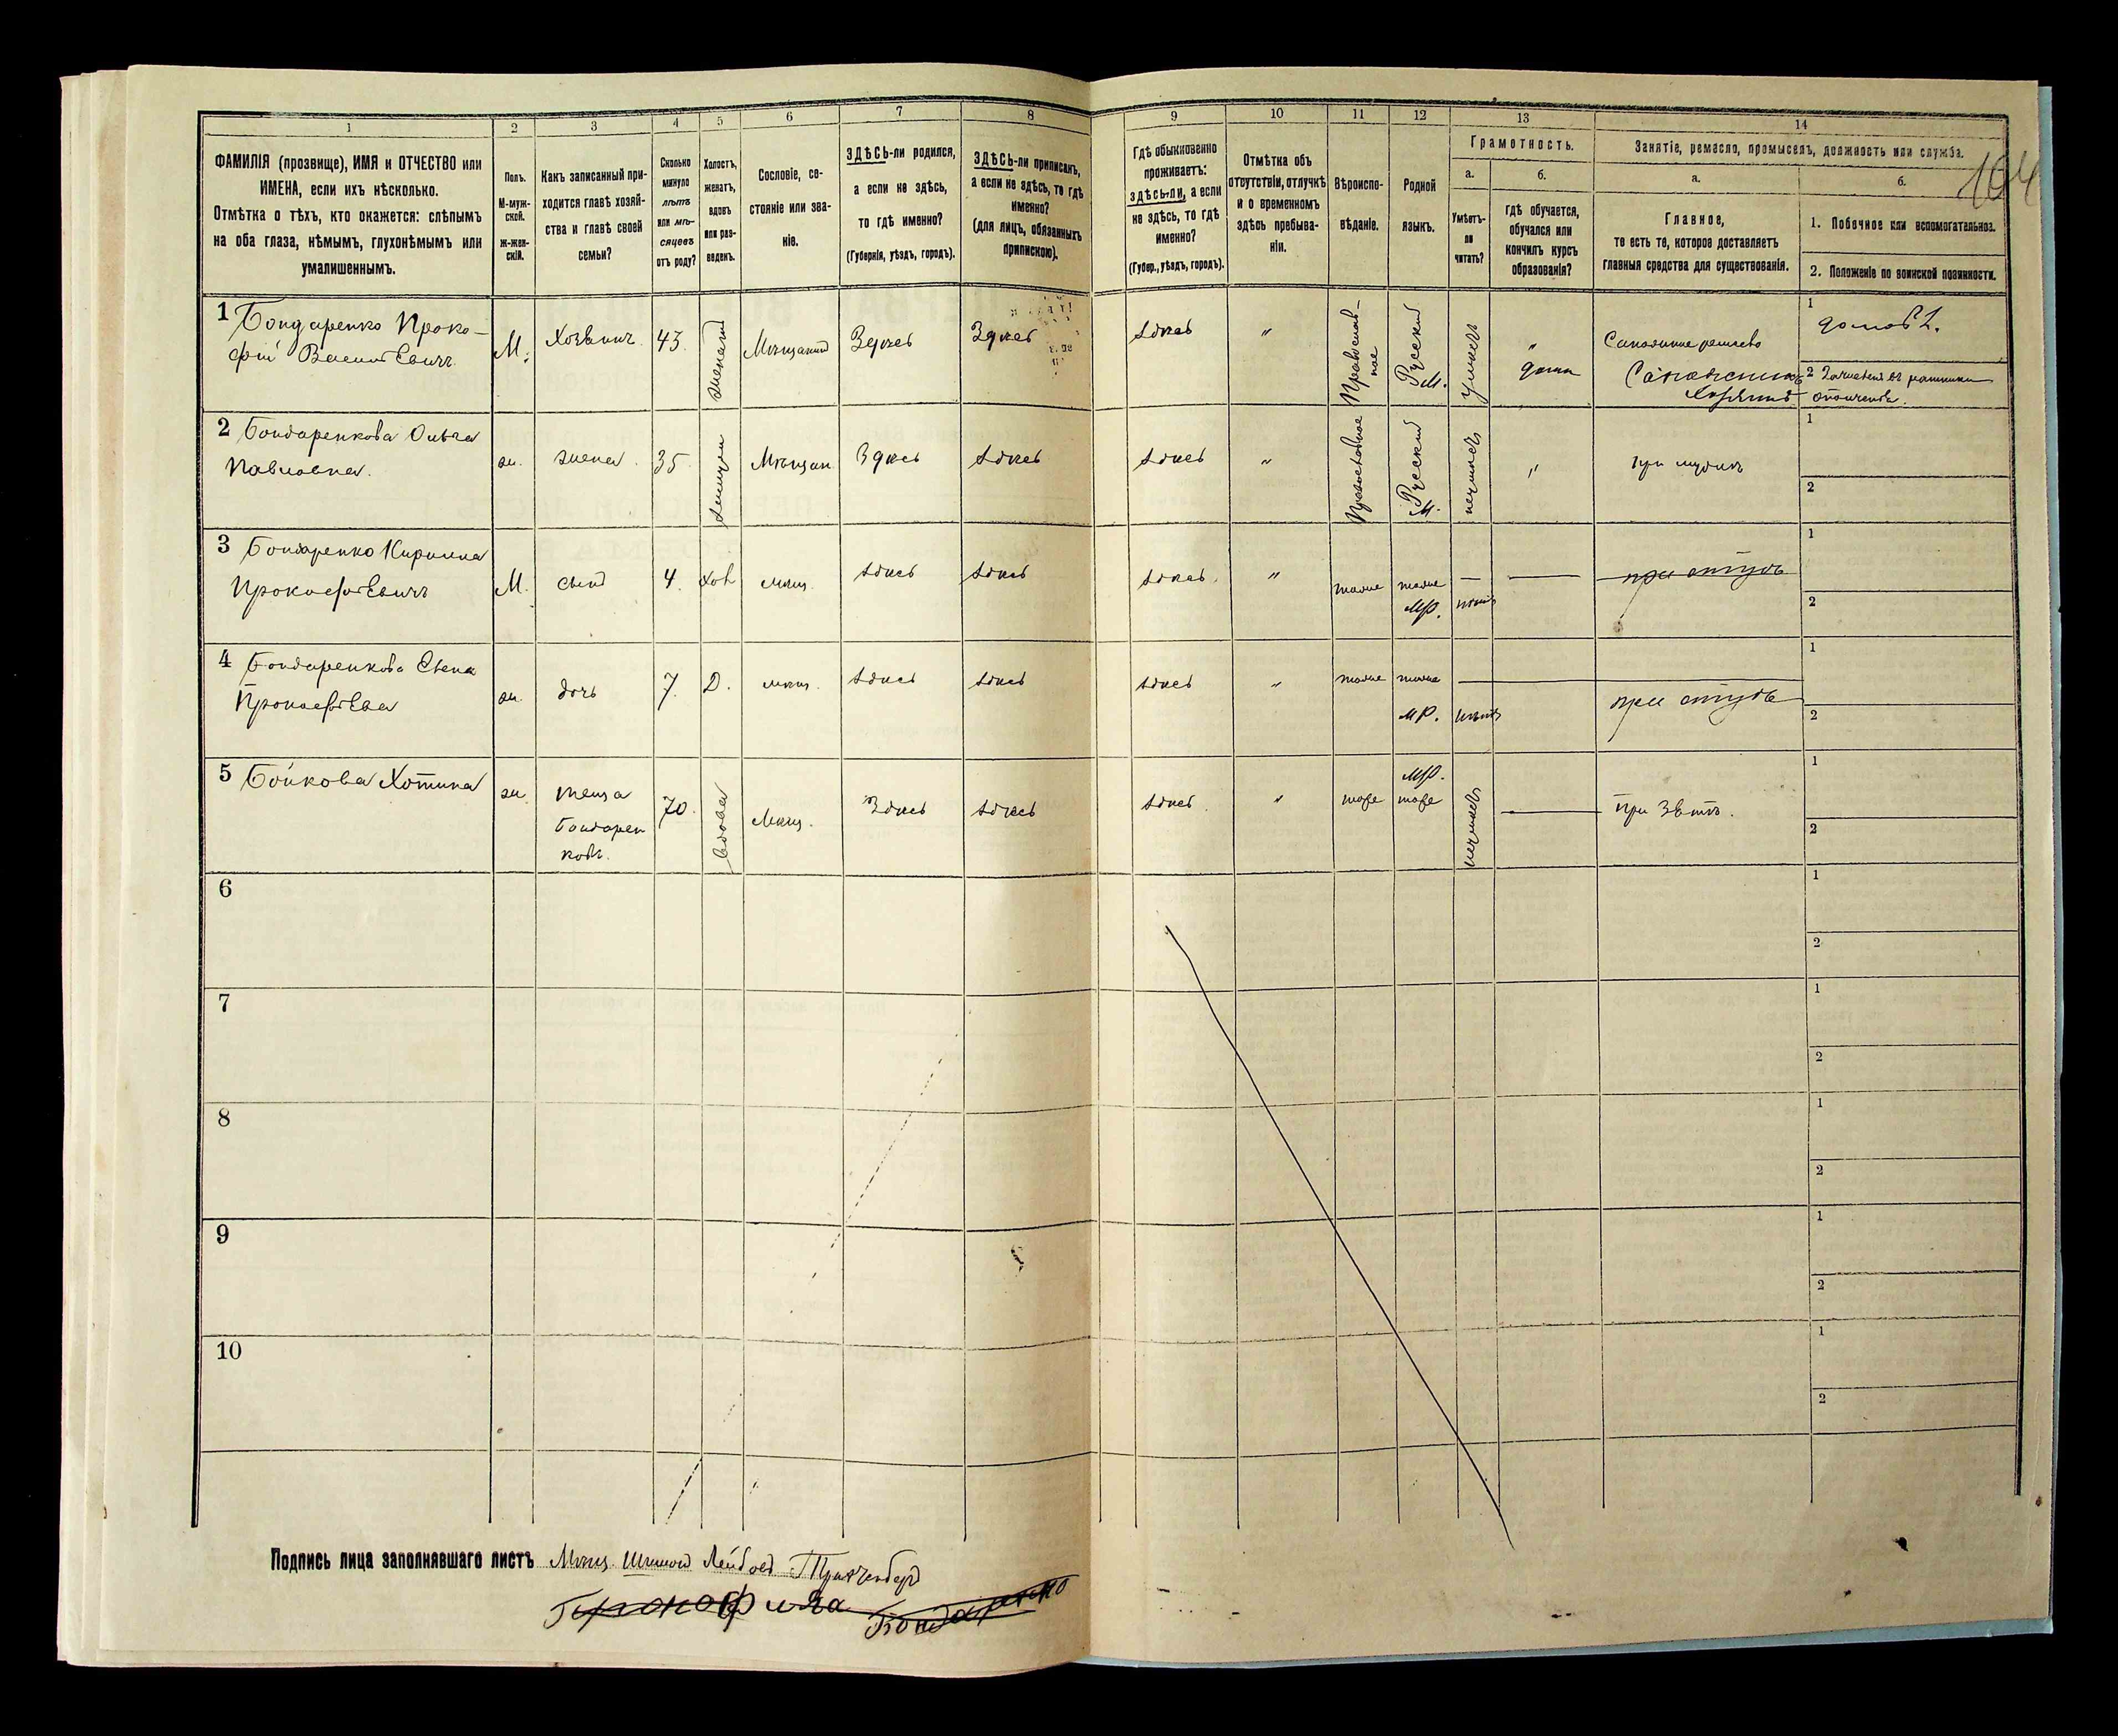 1 2 3 4 5 6 7 8 9 10 11 12 13 14
ФАМИЛІЯ (прозвище), ИМЯ и ОТЧЕСТВО или
ИМЕНА, если ихъ нѣсколько.
Отмѣтка о тѣхъ, кто окажется: слѣпымъ
на оба глаза, нѣмымъ, глухонѣмымъ или
умалишеннымъ.
Полъ.
М-муж-
ской.
ж-жен-
скій.
Какъ записанный при-
ходится главѣ хозяй-
ства и главѣ своей
семьи?
Сколько
минуло
лѣтъ
или мѣ-
сяцевъ
отъ роду?
Холостъ,
женатъ,
вдовъ
или раз-
веденъ.
Сословіе, со-
стояніе или зва-
ніе.
ЗДѢСЬ-ли родился,
а если не здѣсь,
то гдѣ именно?
(Губернія, уѣздъ, городъ).
ЗДѢСЬ-ли приписанъ,
а если не здѣсь, то гдѣ
именно?
(для лицъ, обязанныхъ
припискою).
Гдѣ обыкновенно
проживаетъ:
здѣсь-ли, а если
не здѣсь, то гдѣ
именно?
(Губер., уѣздъ, городъ).
Отмѣтка объ
отсутствіи, отлучкѣ
и о временномъ
здѣсь пребыва-
ніи.
Вѣроиспо-
вѣданіе.
Родной
языкъ.
Грамотность.
а.
Умѣетъ-
ли
читать?
б.
Гдѣ обучается,
обучался или
кончилъ курсъ
образованія?
Занятіе, ремесло, промыселъ, должность или служба.
а.
Главное,
то есть то, которое доставляетъ
главныя средства для существованія.
б.
1. Побочное или вспомогательное.
2. Положеніе по воинской повинности.
104
1 Бондаренко Проко-
фій Васильевичъ
М. Хозяинъ 43 женатъ Мѣщанинъ Здѣсь Здѣсь Здѣсь " Православ-
ное Русскій
М. умѣетъ "
дома
Сапожное ремесло
Сапожникъ
хозяинъ
1
2 Зачисленъ въ ратники
ополченія.
2 Бондаренкова Ольга
Павловна.
ж. жена 35 Мѣщан. Здѣсь здѣсь здѣсь " Православное Русскій
М. " при мужѣ
1
2
3 Бондаренко Кирилла
Прокофьевичъ
М. сынъ 4. хол мѣщ. здѣсь здѣсь здѣсь " тоже тоже
МР. при отцѣ
1
2
4 Бондаренкова
Прокофьева
ж. дочь 7. Д. мѣщ. здѣсь здѣсь здѣсь " тоже тоже
МР. при отцѣ
1
2
5 Бойкова Хотина
ж. теща
Бондарен
ков. 70 вдова Мѣщ. Здѣсь здѣсь здѣсь " тоже МР.
тоже при зятѣ.
1
2
6
1
2
7
1
2
8
1
2
9
1
2
10
1
2
Подпись лица заполнявшаго листъ Мѣщ.
Прокофия Бондаренко